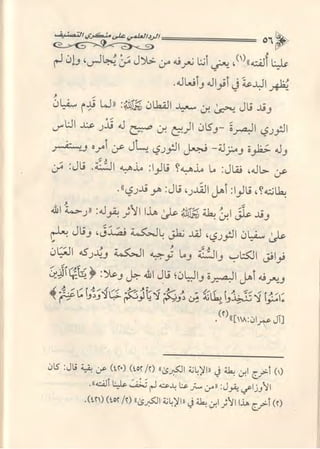 ٥٦ الرد العلمي على منكري التصنيف
علينا ألفته»(١)، يعني أننا نعرفه من خلال مَنْ يُجالس، وإن لم
يُظهر البدعة في أقواله وأفعاله.
وقد قال يحيى بن سعيد القطان رَحِمَهُ اللهُ: «لما قدِم سفيان
الثوري البصرة - وكان الربيع بن صبيح له قدر عند الناس
وله حظوة ومنزلة - فجعل الثوري يسأل عن أمره ويستفسر
عن حاله، فقال: ما مذهبه؟ قالوا: مذهبه السُّنة. قال: مَن
بطانته؟، قالوا: أهل القدر، قال: هو قدري».
وقد علَّق ابن بطة رَحِمَهُ اللهُ على هذا الأثر بقوله: «رحمة الله
على سفيان الثوري، لقد نطق بالحكمة فصَدَق، وقال بعلم
فوافق الكتاب والسُّنة وما توجبه الحكمة ويُدركه العيان
ويعرفه أهل البصيرة والبيان؛ قال الله جل وعلا: ﴿يَٰٓأَيُّهَا ٱلَّذِينَ
ءَامَنُوا۟ لَا تَتَّخِذُوا۟ بِطَانَةً مِّن دُونِكُمْ لَا يَأْلُونَكُمْ خَبَالًا وَدُّوا۟ مَا عَنِتُّمْ﴾
[آل عمران: ١١٨]»(٢).
(١) أخرج ابن بطة في «الإبانة الكبرى» (٢/ ٤٥٢) (٤٢٠) عن بقية قال: كان
الأوزاعي يقول: «من ستر عنا بدعته لم تَخْفَ علينا ألفته».
(٢) أخرج هذا الأثر ابن بطة في «الإبانة الكبرى» (٢/ ٤٥٢) (٤٢١).